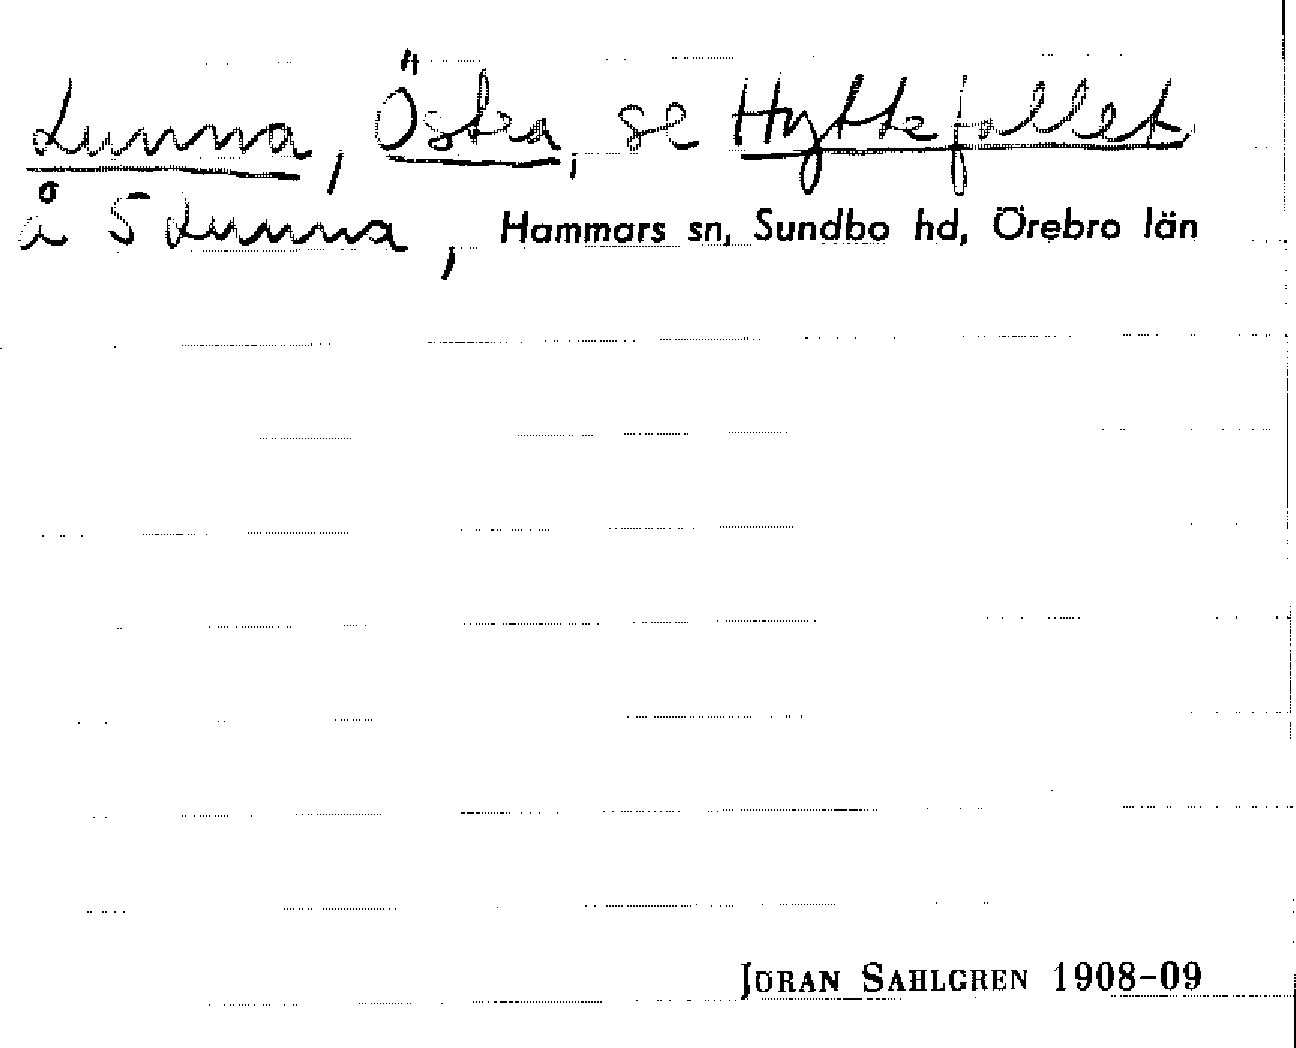 Lunna, Östra, se Hyttefallet
å S Lunna, Hammars sn, Sundbo hd, Örebro län
JÖRAN SAHLGREN 1908-09